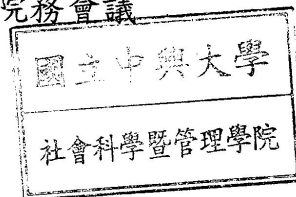 院務會議
國立中興大學
社會科學暨管理學院